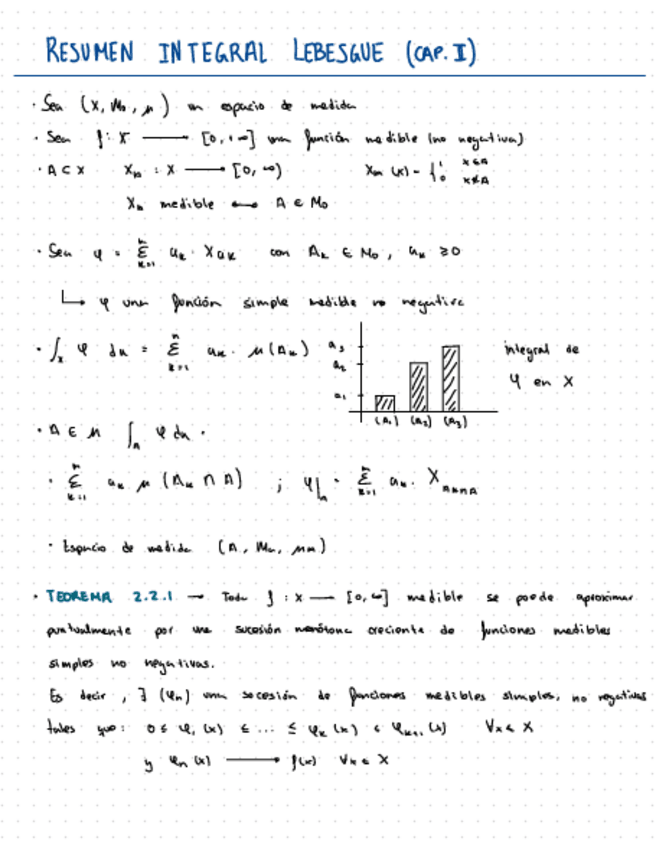 RESUMEN INTEGRAL LEBESGUE (CAP. II)
· Sea (X, M, μ) un espacio de medida
· Sea f: X → [0, +∞] una función medible (no negativa)
· A ⊂ X   X_A : X → [0, ∞)   X_A (x) = { 1 x∈A 0 x∉A
X_A medible ↔ A ∈ M
· Sea φ = Σ_{k=1}^{n} a_k · X_{A_k} con A_k ∈ M, a_k ≥ 0
↳ φ una función simple medible no negativa
· ∫_X φ dμ = Σ_{k=1}^{n} a_k · μ(A_k)
a_3
a_2
a_1
(A_1) (A_2) (A_3)
integral de
φ en X
· A ∈ M ∫_A φ dμ ·
· Σ_{k=1}^{n} a_k μ (A_k ∩ A) ; φ|_A · Σ_{k=1}^{n} a_k · X_{A_k∩A}
· Espacio de medida (A, M_A, μ_A)
· TEOREMA 2.2.1 → Toda f : X → [0, ∞] medible se puede aproximar
puntualmente por una sucesión monótona creciente de funciones medibles
simples no negativas.
Es decir, ∃ (φn) una sucesión de funciones medibles simples, no negativas
tales que: 0 ≤ φ_1 (x) ≤ ... ≤ φ_k (x) ≤ φ_{k+1} (x) ∀x ∈ X
y φn (x) → f(x) ∀x ∈ X